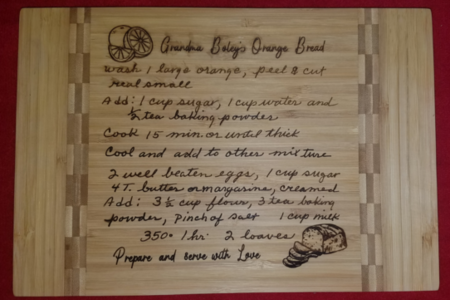 Grandma Boley's Orange Bread
wash 1 large orange, peel & cut
real small
Add: 1 cup sugar, 1 cup water and
½ tea baking powder
Cook 15 min or until thick
Cool and add to other mixture
2 well beaten eggs, 1 cup sugar
4 T. butter or margarine, creamed
Add: 3 ½ cup flour, 3 tea baking
powder, Pinch of salt 1 cup milk
350° 1 hr 2 loaves
Prepare and serve with Love